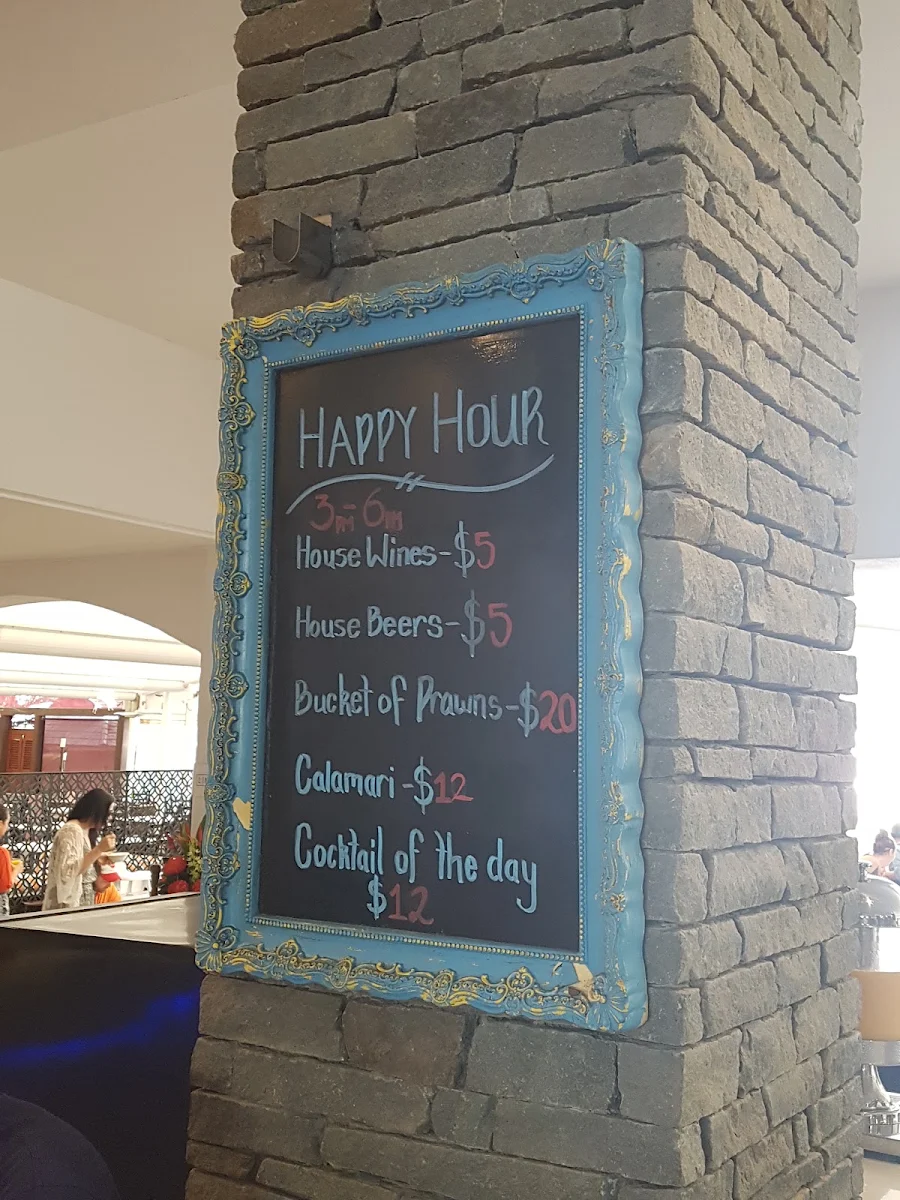 HAPPY HOUR
3PM-6PM
House Wines-$5
House Beers-$5
Bucket of Prawns-$20
Calamari-$12
Cocktail of the day
$12